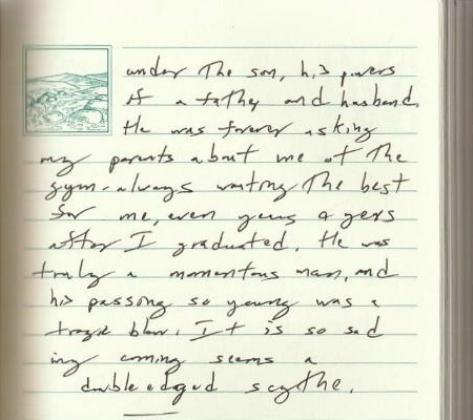 under the son, his powers
of a father and husband.
He was forever asking
my parents about me at the
gym - always wanting the best
for me, even years & years
after I graduated. He was
truly a momentous man, and
his passing so young was a
tragic blow. It is so sad
ing coming seems a
double edged scythe.